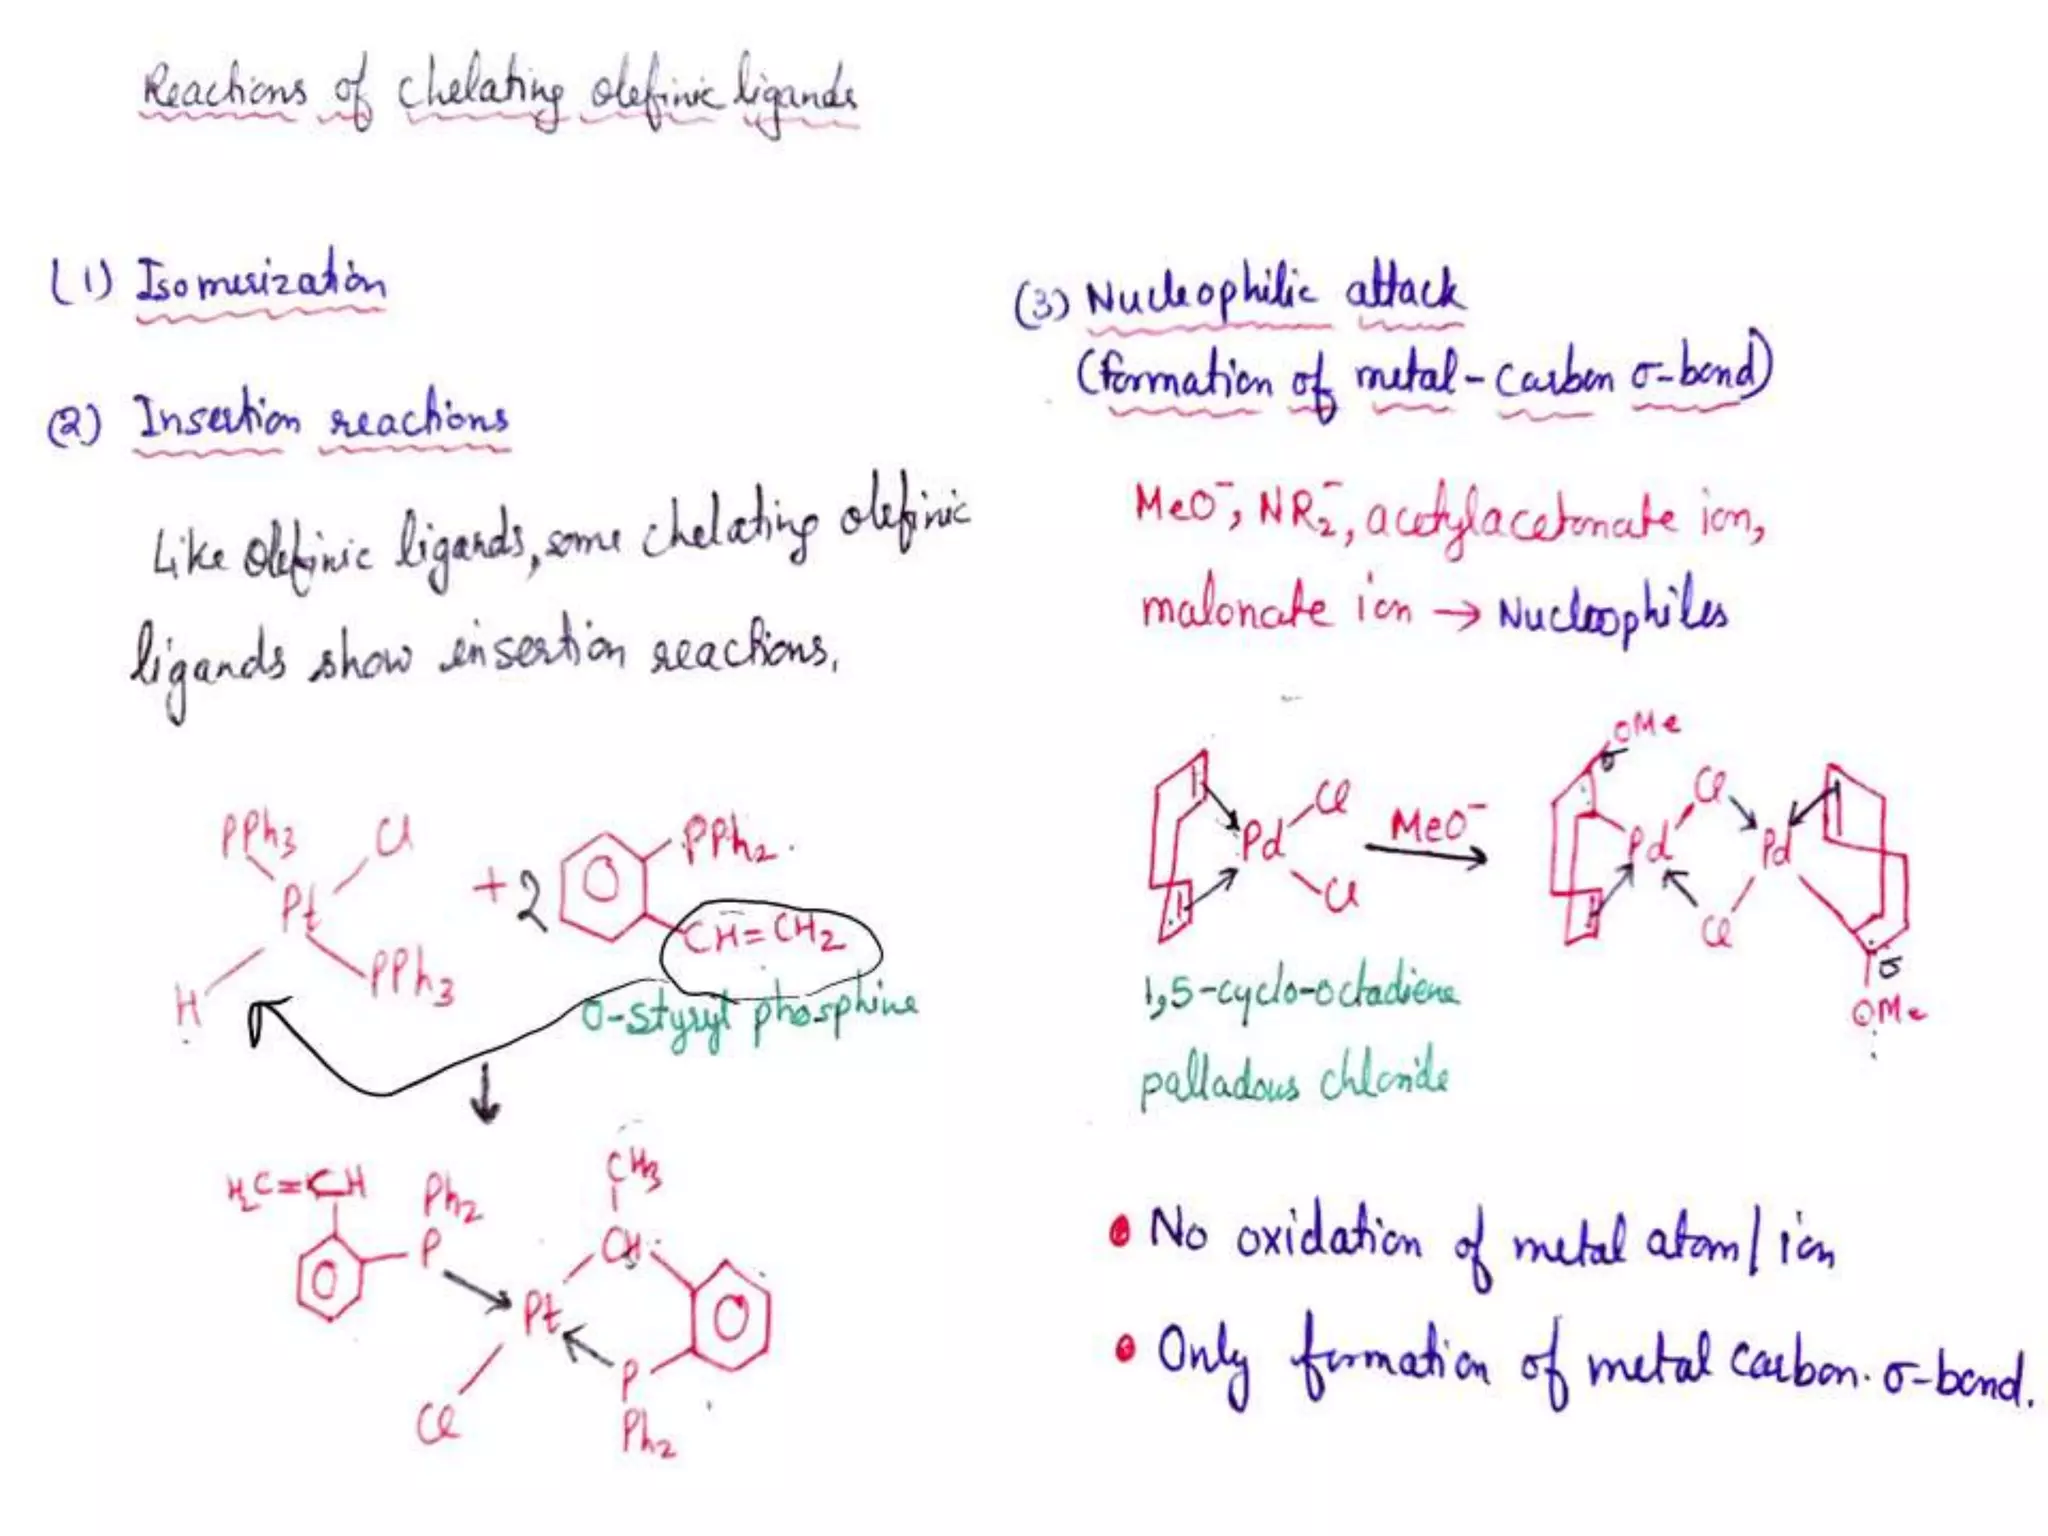 Reactions of chelating olefinic ligands
(1) Isomerization
(2) Insertion reactions
Like olefinic ligands, some chelating olefinic
ligands show insertion reactions.
PPh3
Cl
Pt
H
PPh3
+ 2
PPh2
CH=CH2
o-styryl phosphine
H2C=CH
Ph2
P
CH3
CH
Pt
Cl
P
Ph2
(3) Nucleophilic attack
(formation of metal-carbon σ-bond)
MeO⁻, NR2⁻, acetylacetonate ion,
malonate ion → Nucleophiles
Cl
Pd
Cl
MeO⁻
OMe
σ
Cl
Pd
Pd
Cl
σ
OMe
1,5-cyclo-octadiene
palladous chloride
• No oxidation of metal atom/ion
• Only formation of metal carbon. σ-bond.